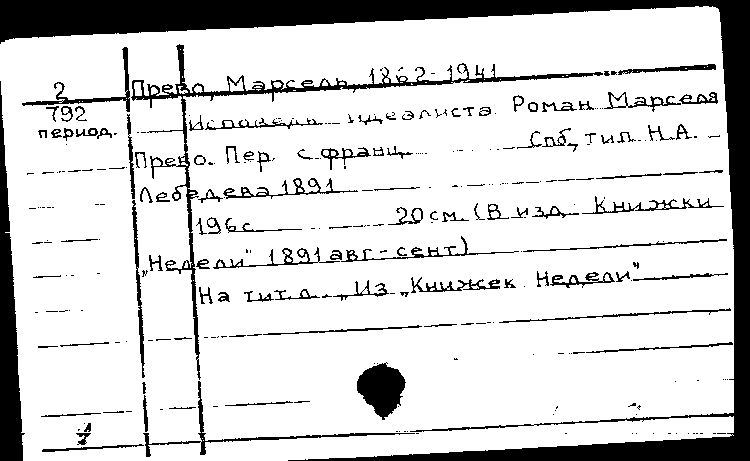 2 Прево, Марсель, 1862-1941
792 Исповедь идеалиста. Роман Марселя
период.
Прево. Пер. с франц. Спб, тип. Н.А.
Лебедева, 1891
196 с. 20 см. (В изд. Книжки
„Недели" 1891 авг-сент)
На тит. л. „Из „Книжек Недели"